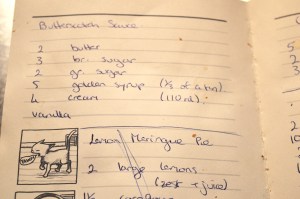 Butterscotch Sauce
2 butter
3 br. sugar
2 gr. sugar
5 golden syrup (1/3 of a tin)
4 cream (110ml)
vanilla
Lemon Meringue Pie
2 large lemons
(zest + juice)